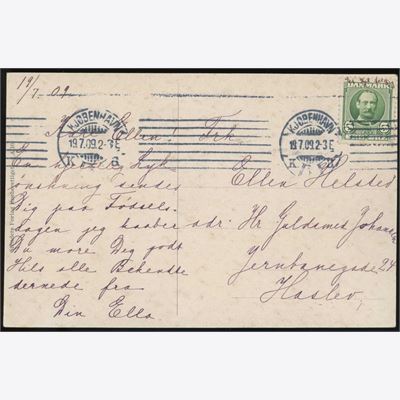 19/7 09.
KJØBENHAVN
19.7.09.2-3E
K. 6
KJØBENHAVN
19.7.09.2-3E
K.
DANMARK
5
Kære Ellen!
En hjertelig Lyk
ønskning sendes
Dig paa Fødsels-
dagen jeg haaber
Du more Deg godt
Hils alle Bekendte
dernede fra
Din Ella
Frk
Ellen Helsted
adr. Hr Guldsmed Johansen
Jernbanegade 24
Haslev.